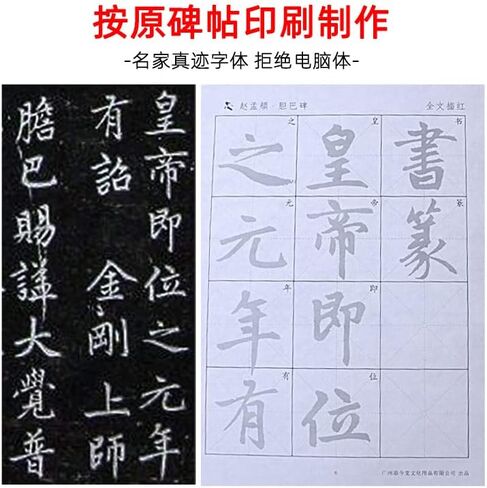 按原碑帖印刷制作
-名家真迹字体 拒绝电脑体-
皇帝即位之元年
有詔 金剛上師
膽巴賜諡大覺普
赵孟頫·胆巴碑
全文描红
书 書
篆 篆
皇 皇
帝 帝
即 即
位 位
之 之
元 元
年 年
有 有
6
广州慕今堂文化用品有限公司 出品